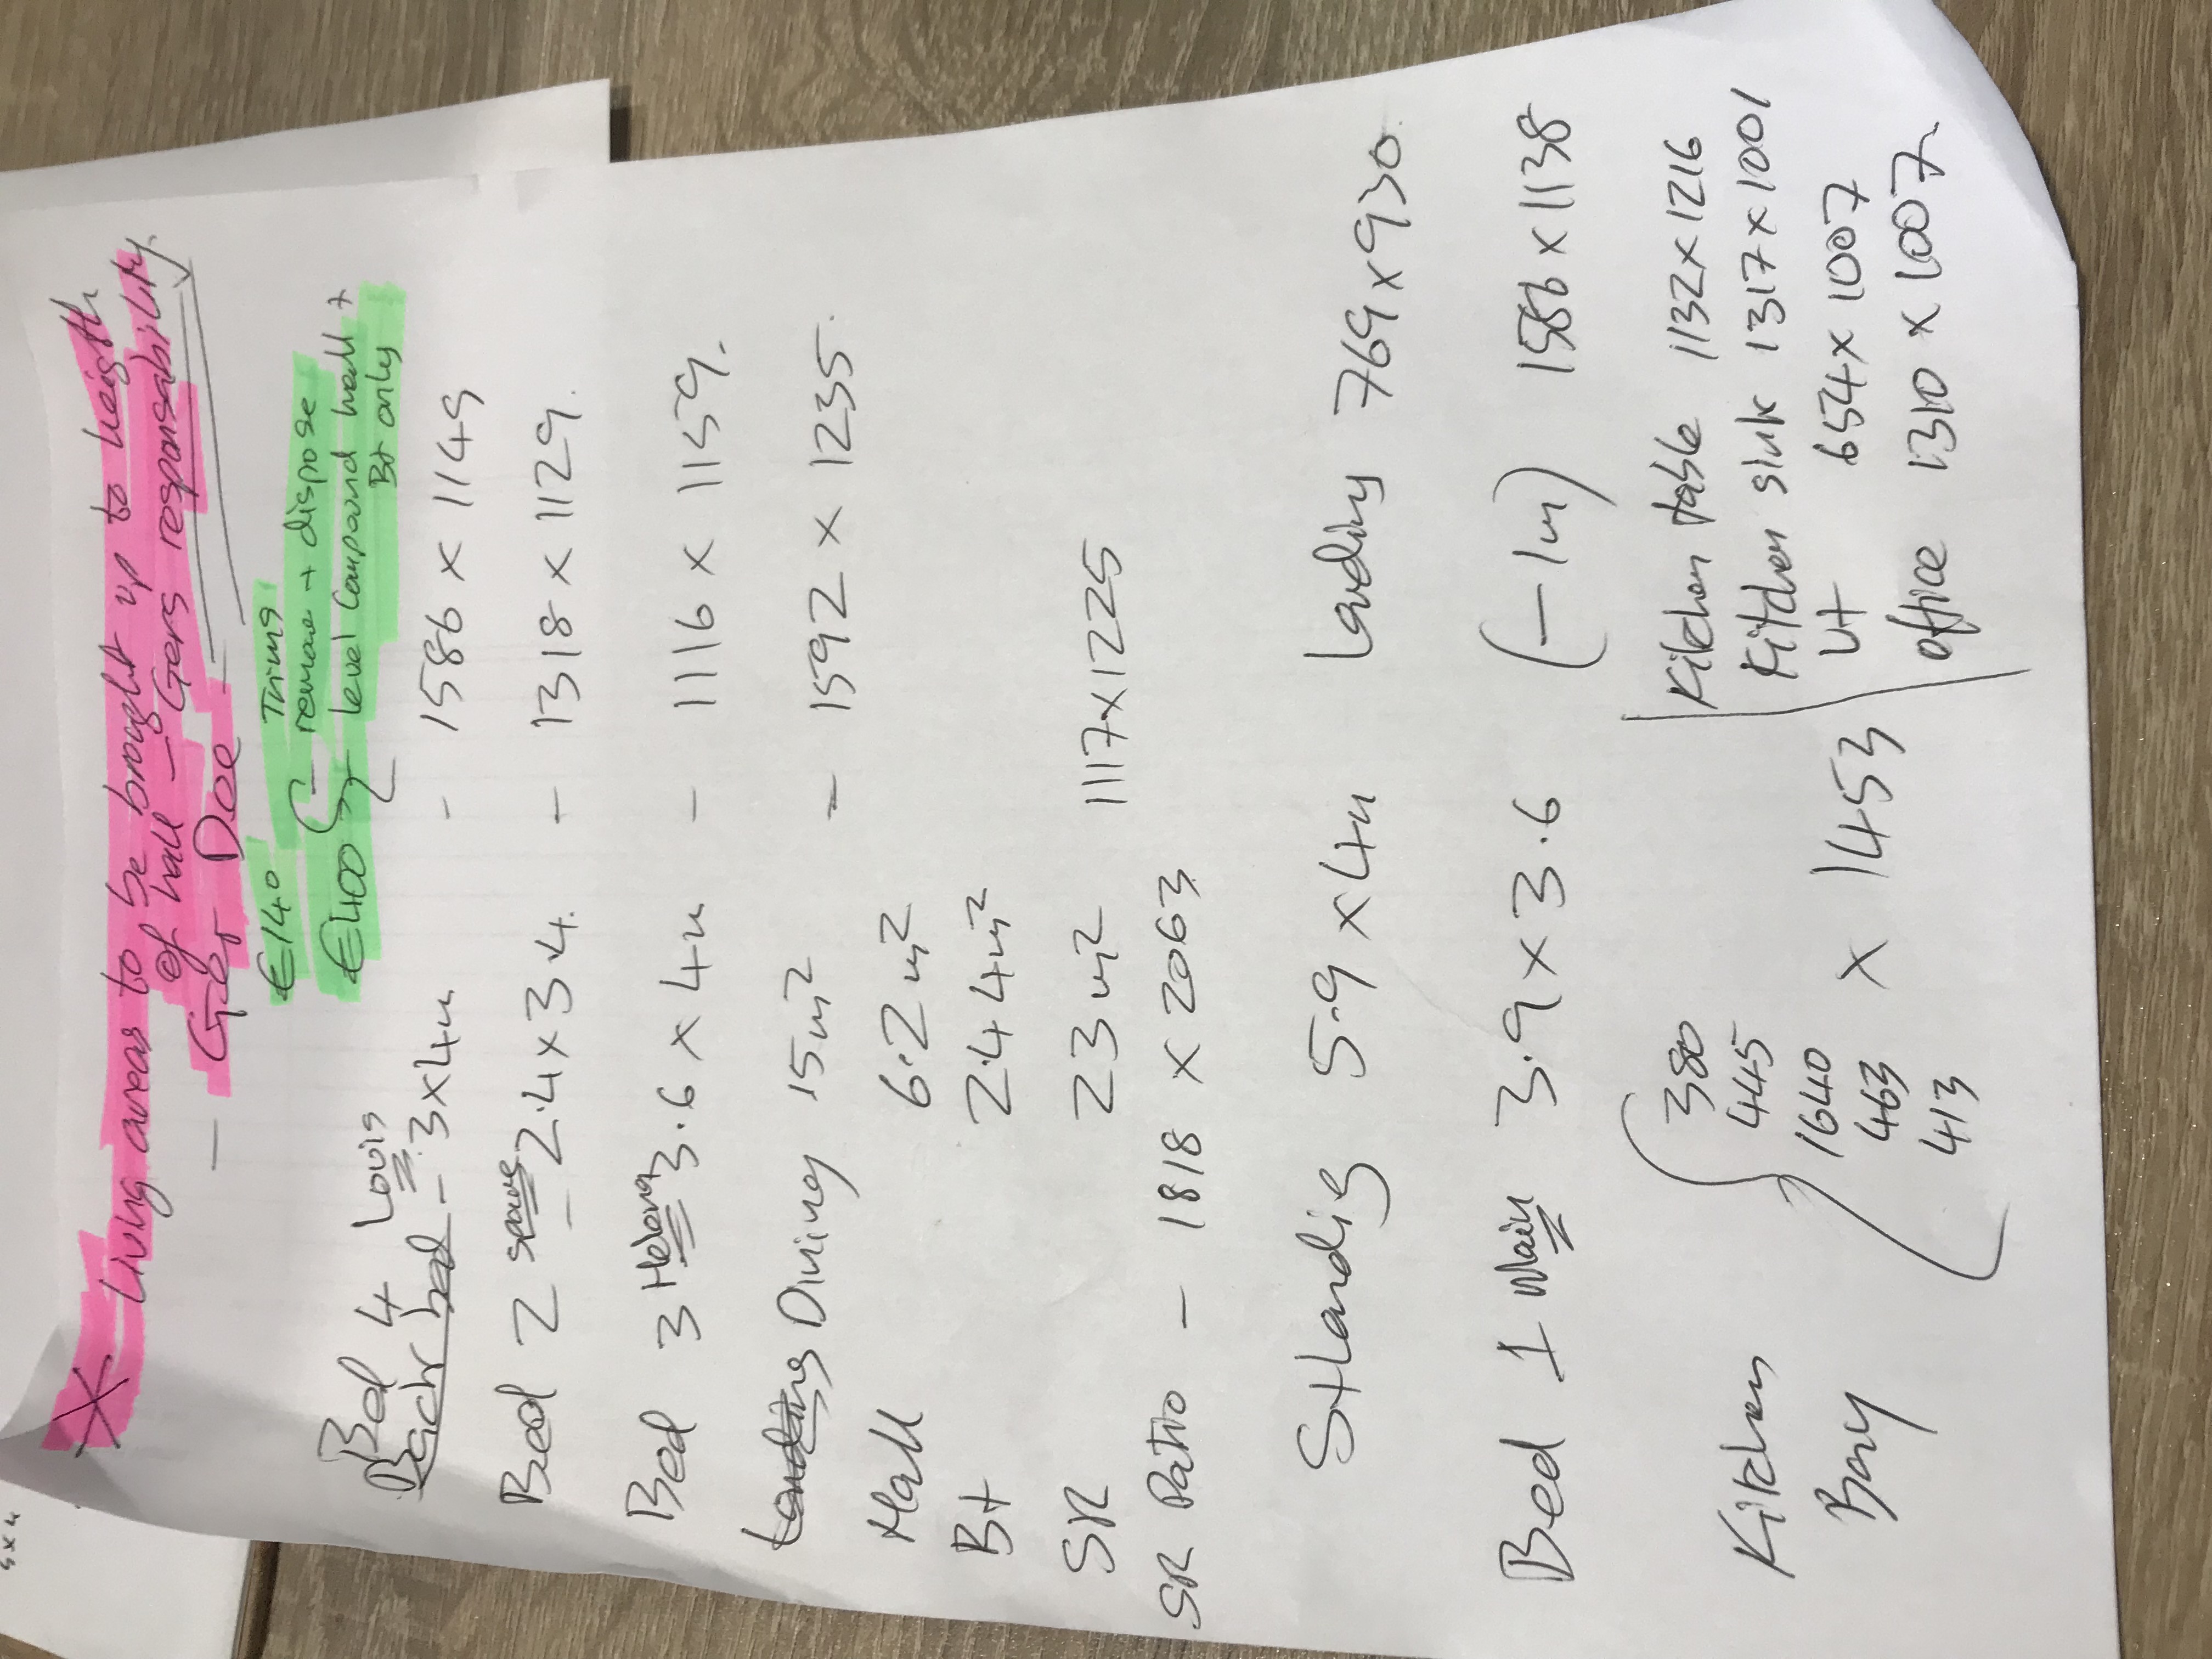 X Living areas to be brought up to height
of hall - Gers responsability.
- Ger Doe
€140 Trims
€400 { - remove + dispose
level compound hall +
Bt only
Bed 4 Louis
Back bed - 3x4m - 1586 x 1149
Bed 2 - 2.4x3.4. - 1318 x 1129.
Bed 3 3.6 x 4m - 1116 x 1159.
Landing Dining 15m² - 1592 x 1235.
Hall 6.2m²
Bt 2.4m²
SR 23m² 1117x1225
SR Patio - 1818 x 2063
St Landig 5.9 x 4m Landing 769 x 930.
Bed 1 Main 3.9 x 3.6 (-1m) 1586 x 1138
Kitchen Bay { 380
445
1640
463
413 x 1453
Kitchen table 1132 x 1216
Kitchen sink 1317 x 1001
Ut 654 x 1007
office 1310 x 1007